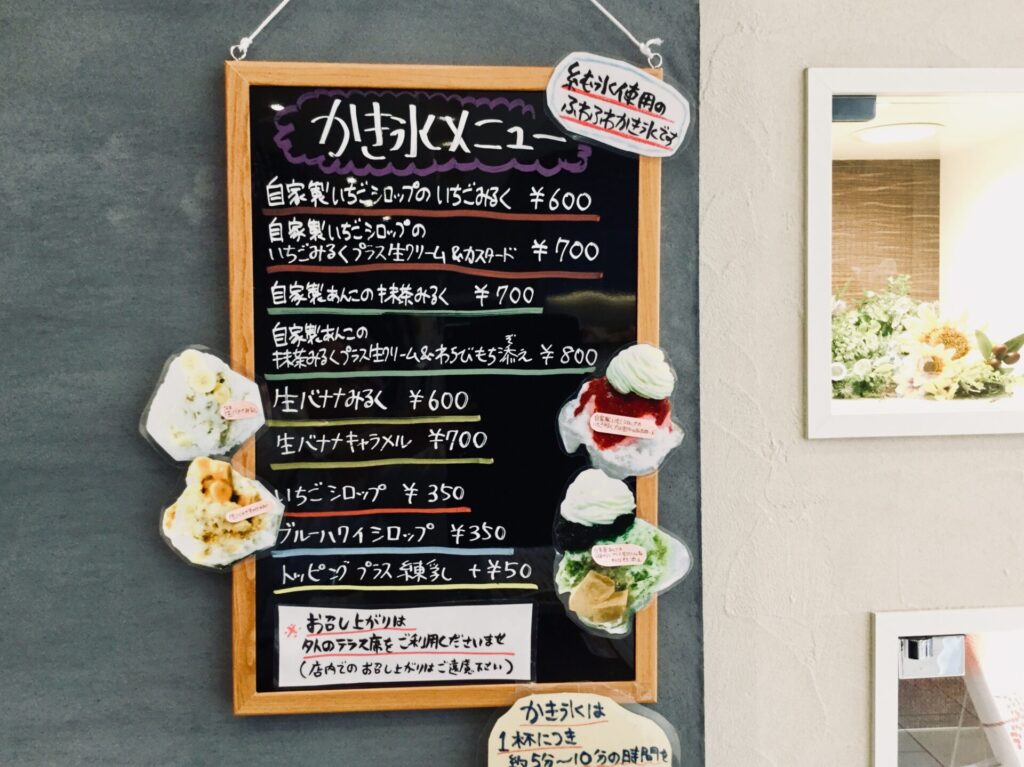 純氷使用の
ふわふわかき氷です
かき氷メニュー
自家製いちごシロップの いちごみるく ¥600
自家製いちごシロップの
いちごみるくプラス生クリーム&カスタード ¥700
自家製あんこの抹茶みるく ¥700
自家製あんこの
抹茶みるくプラス生クリーム&わらびもち添え ¥800
ぎ
生バナナみるく ¥600
生バナナキャラメル ¥700
いちごシロップ ¥350
ブルーハワイシロップ ¥350
トッピング プラス練乳 +¥50
※ お召し上がりは
外のテラス席をご利用くださいませ
(店内でのお召し上がりはご遠慮下さい)
かき氷は
1杯につき
約5分〜10分の時間を